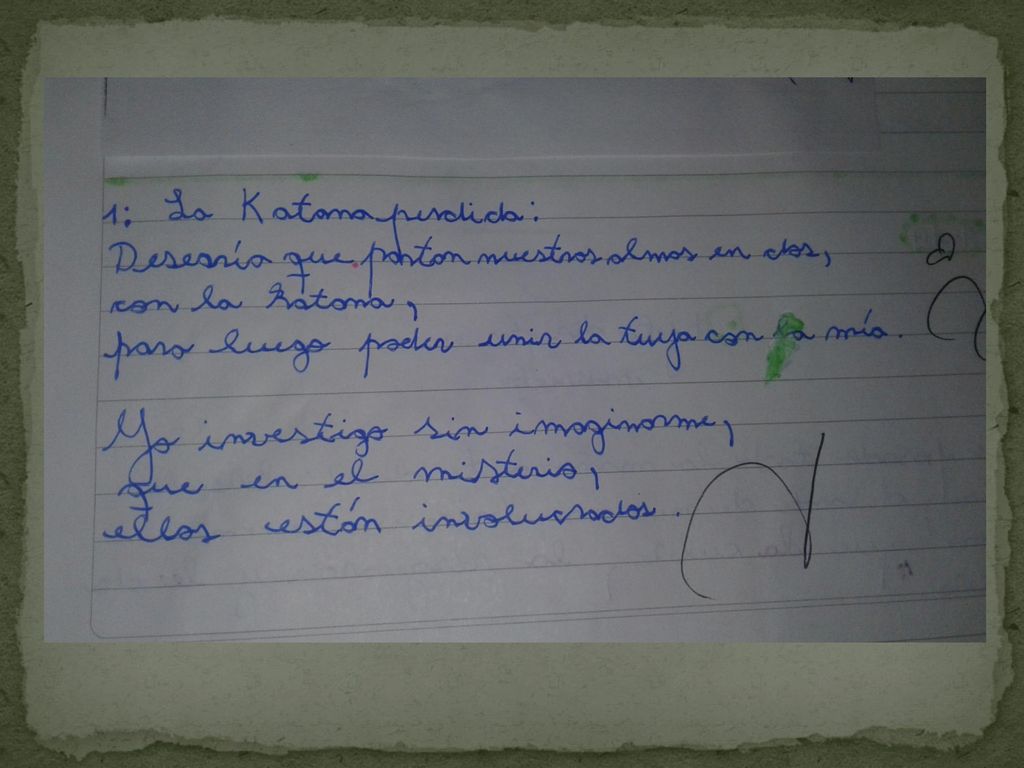 1: La Katana perdida:
Desearía que partan nuestras almas en dos,
con la katana,
para luego poder unir la tuya con la mía.
Yo investigo sin imaginarme,
que en el misterio,
ellos están involucrados.